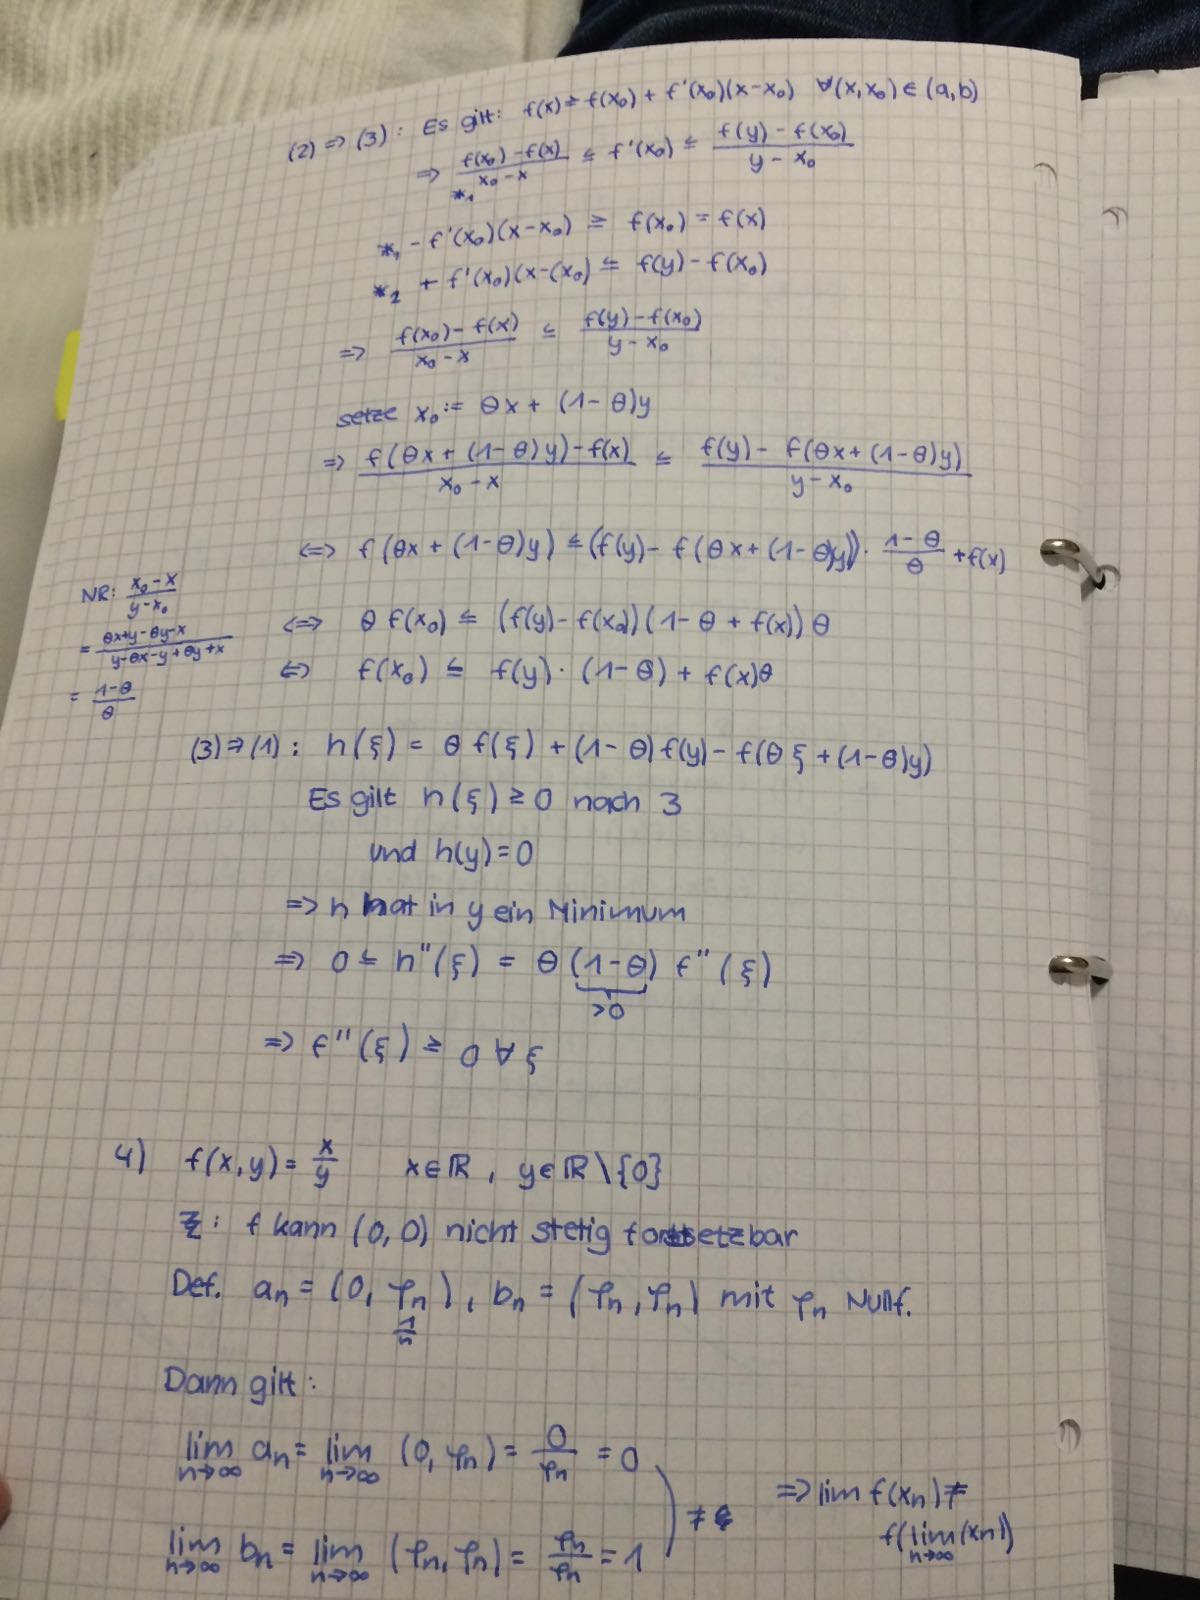 (2) => (3): Es gilt: f(x) ≥ f(x₀) + f'(x₀)(x-x₀) ∀(x,x₀) ∈ (a,b)
=> (f(x₀) - f(x))/(x₀ - x) ≤ f'(x₀) ≤ (f(y) - f(x₀))/(y - x₀)
*₁
*₁ - f'(x₀)(x-x₀) ≥ f(x₀) = f(x)
*₂ + f'(x₀)(x-(x₀) ≤ f(y) - f(x₀)
=> (f(x₀) - f(x))/(x₀ - x) ≤ (f(y) - f(x₀))/(y - x₀)
setze x₀ := θx + (1-θ)y
=> (f(θx + (1-θ)y) - f(x))/(x₀ - x) ≤ (f(y) - f(θx + (1-θ)y))/(y - x₀)
<=> f(θx + (1-θ)y) ≤ (f(y) - f(θx + (1-θ)y)) · (1-θ)/θ + f(x)
NR: (x₀ - x)/(y - x₀)
= (θx+y-θy-x)/(y-θx-y+θy+x)
= (1-θ)/θ
<=> θ f(x₀) ≤ (f(y) - f(x₀))(1-θ + f(x))θ
<=> f(x₀) ≤ f(y) · (1-θ) + f(x)θ
(3) => (1): h(ξ) = θ f(ξ) + (1-θ) f(y) - f(θξ + (1-θ)y)
Es gilt h(ξ) ≥ 0 nach 3
und h(y) = 0
=> h hat in y ein Minimum
=> 0 ≤ h''(ξ) = θ (1-θ) f''(ξ)
>0
=> f''(ξ) ≥ 0 ∀ ξ
4) f(x,y) = x/y x∈ℝ, y∈ℝ\{0}
Z: f kann (0,0) nicht stetig fortsetzbar
Def. aₙ = (0, φₙ), bₙ = (φₙ, φₙ) mit φₙ Nullf.
1/n
Dann gilt:
lim n→∞ aₙ = lim n→∞ (0, φₙ) = 0/φₙ = 0
lim n→∞ bₙ = lim n→∞ (φₙ, φₙ) = φₙ/φₙ = 1
≠
=> lim f(xₙ) ≠
f(lim n→∞ (xₙ))